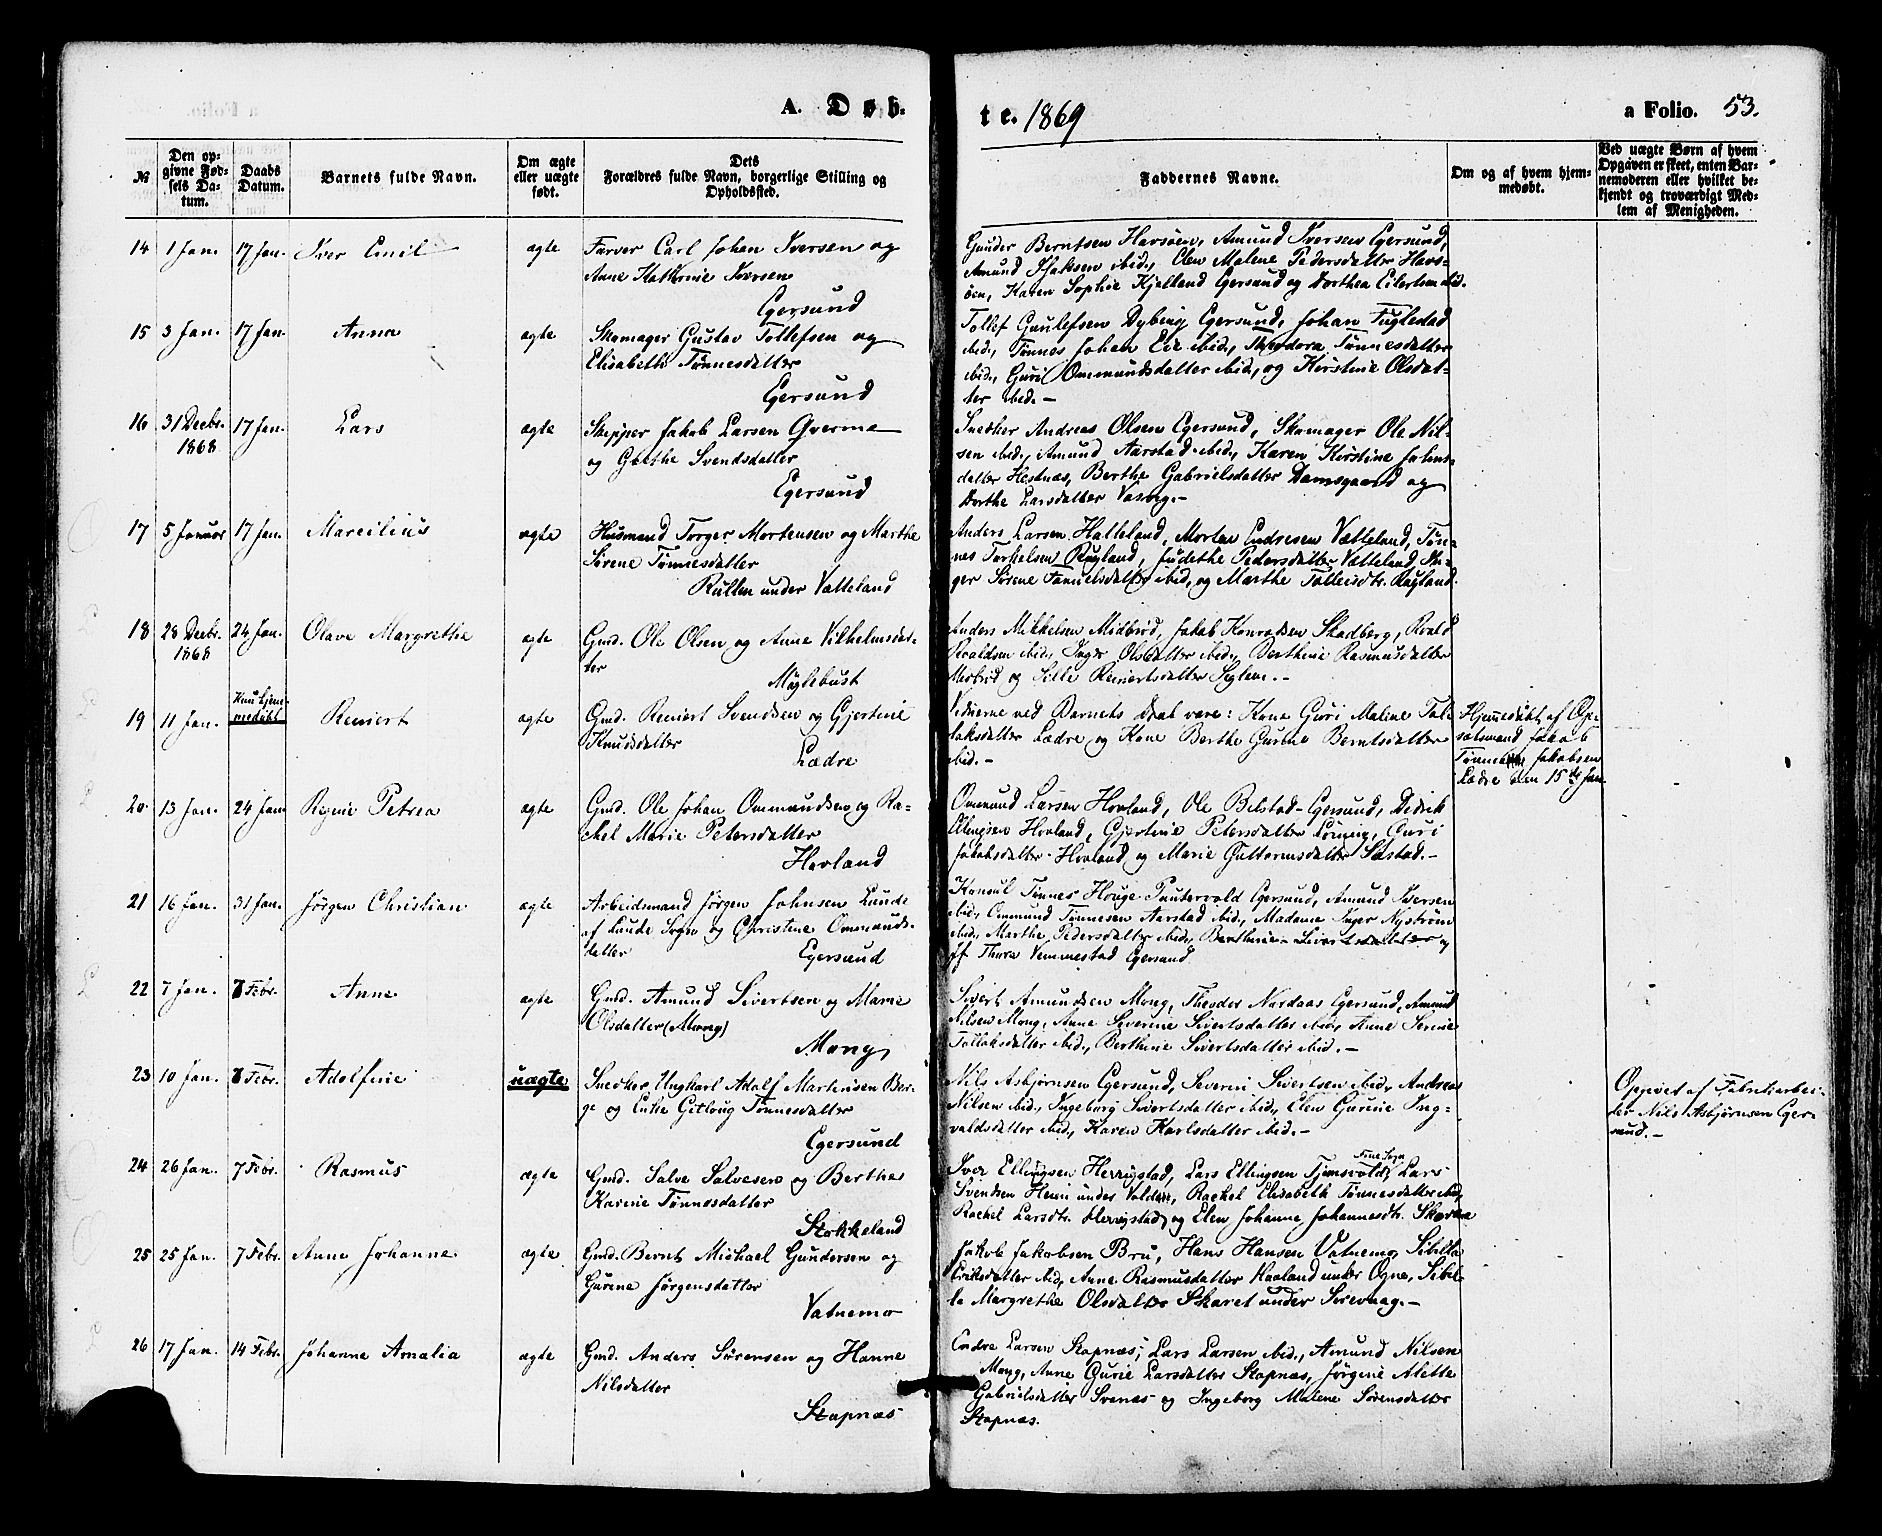 A. Døb-
te. 1869
a Folio. 53.
№
Den op-
givne Fød-
sels Da-
tum.
Daabs
Datum.
Barnets fulde Navn.
Om ægte
eller uægte
født.
Dets
Forældres fulde Navn, borgerlige Stilling og
Opholdssted.
Faddernes Navne.
Om og af hvem hjem-
medøbt.
Ved uægte Børn af hvem
Opgaven er skeet, enten Bar-
nemoderen eller hvilket be-
kjendt og troværdigt Med-
lem af Menigheden.
14 1 Jan. 17 Jan. Iver Emil ægte
Farver Carl Johan Iversen og
Anne Kathrine Iversen
Egersund
Gunder Berntsen Havsøen, Amund Iversen Egersund,
Amund Isaksen ibid., Elen Malene Pedersdatter Havs-
øen, Karen Sophie Kjelland Egersund og Dorthea Eilertsen ibid.
15 3 Jan. 17 Jan. Anna ægte
Skomager Gustav Tollefsen og
Elisabeth Tønnesdatter
Egersund
Tollef Gunlefsen Dybing Egersund, Johan Fuglestad
ibid., Tønnes Johan Eie ibid., Theodora Tønnesdatter
ibid., Guri Ommundsdatter ibid., og Kirstine Olsdat-
ter ibid. -
16 31 Decbr. 1868 17 Jan. Lars ægte
Skipper Jakob Larsen Qverme
og Gjethe Svendsdatter
Egersund
Snedker Andreas Olsen Egersund, Skomager Ole Nil-
sen ibid., Amund Aarstad ibid., Karen Kirstine Johns-
datter Hestnæs, Berthe Gabrielsdatter Damsgaard og
Dorthe Larsdatter Vasvog. -
17 5 Januar 17 Jan. Marcilius ægte
Husmand Torger Mortensen og Marthe
Serene Tønnesdatter
Rutlen under Vatteland
Anders Larsen Halleland, Morten Endresen Vætteland, Tøn-
nes Torkelsen Rugland, Judethe Pedersdatter Vætteland, In-
ger Serene Samuelsdatter ibid., og Marthe Tolleisdtr. Rugland.
18 28 Decbr. 1868 24 Jan. Olave Margrethe ægte
Gmd. Ole Olsen og Anne Vilhelmsdat-
ter
Myglebust
Anders Mikkelsen Midbrød, Jakob Konradsen Skadberg, Roald
Roaldsen ibid., Inger Olsdatter ibid., Berthine Rasmusdatter
Midbrød og Sille Reinertsdatter Seglem. -
19 11 Jan. Kun hjem-
medøbt Reinert ægte
Gmd. Reinert Svendsen og Gjertine
Knudsdatter
Lædre
Vidnerne ved Barnets Daab vare: Kone Guri Maline Tol-
laksdatter Lædre og Kone Berthe Gurine Berntsdatter
ibid. -
Hjemmedøbt af Op-
sidsmand Jakob
Tønnes Jakobsen
Lædre den 15de Jan.
20 13 Jan. 24 Jan. Regine Petrea ægte
Gmd. Ole Johan Ommundsen og Ra-
chel Marie Petersdatter
Hovland
Ommund Larsen Hovland, Ole Bilstad Egersund, Didrik
Ellingsen Hovland, Gjertine Petersdatter Lomeng, Guri
Jakobsdatter Hovland og Marie Guttormsdatter Sæstad. -
21 16 Jan. 31 Jan. Jørgen Christian ægte
Arbeidsmand Jørgen Johnsen Lunde
af Lunde Sogn og Christine Ommunds-
datter
Egersund
Konsul Tønnes Houge Puntervold Egersund, Amund Iversen
ibid., Ommund Tønnesen Aarstad ibid., Madame Inger Nystrøm
ibid., Marthe Pedersdatter ibid., Berthine Sivertsdatter og
Jf Thora Vemmestad Egersund
22 7 Jan. 7 Febr. Anne ægte
Gmd. Amund Sivertsen og Marie
Olsdatter (Mong)
Mong
Sivert Amundsen Mong, Theodor Nordaas Egersund, Amund
Nilsen Mong, Anne Severine Sivertsdatter ibid., Anne Serine
Tollaksdatter ibid., Berthine Sivertsdatter ibid. -
23 10 Jan. 7 Febr. Adolfine uægte
Snedker Ungkarl Adolf Martinsen Ber-
ge og Enke Gitlaug Tønnesdatter
Egersund
Nils Asbjørnsen Egersund, Severin Sivertsen ibid., Andreas
Nilsen ibid., Ingeborg Sivertsdatter ibid., Elen Gurine Ing-
valdsdatter ibid., Karen Karlsdatter ibid. -
Opgivet af Fabrikarbei-
der Nils Asbjørnsen Eger-
sund. -
24 26 Jan. 7 Febr. Rasmus ægte
Gmd. Salve Salvesen og Berthe
Karine Tønnesdatter
Stokkeland
Iver Ellingsen Herrigstad, Lars Ellingsen Tjomsvold, Lars
Svendsen Heim under Volden, Rachel Elisabeth Tønnesdatter ibid.,
Rachel Larsdtr. Herrigstad, og Elen Johanne Johannesdtr. Skarra
25 25 Jan. 7 Febr. Anne Johanne ægte
Gmd. Bernt Michael Gundersen og
Gurine Jørgensdatter
Vatnemo
Jakob Jakobsen Bru, Hans Hansen Vatnemo, Sibille
Eriksdatter ibid., Anne Rasmusdatter Haaland under Ogne, Sibil-
le Margrethe Olsdatter Skaret under Sirevaag. -
26 17 Jan. 14 Febr. Johanne Amalia ægte
Gmd. Anders Sørensen og Hanne
Nilsdatter
Stapnæs
Endre Larsen Stapnæs, Lars Larsen ibid., Amund Nilsen
Mong, Anne Gurie Larsdatter Stapnæs, Jørgine Alette
Gabrielsdatter Svanæs og Ingeborg Malene Sørensdatter
Stapnæs.